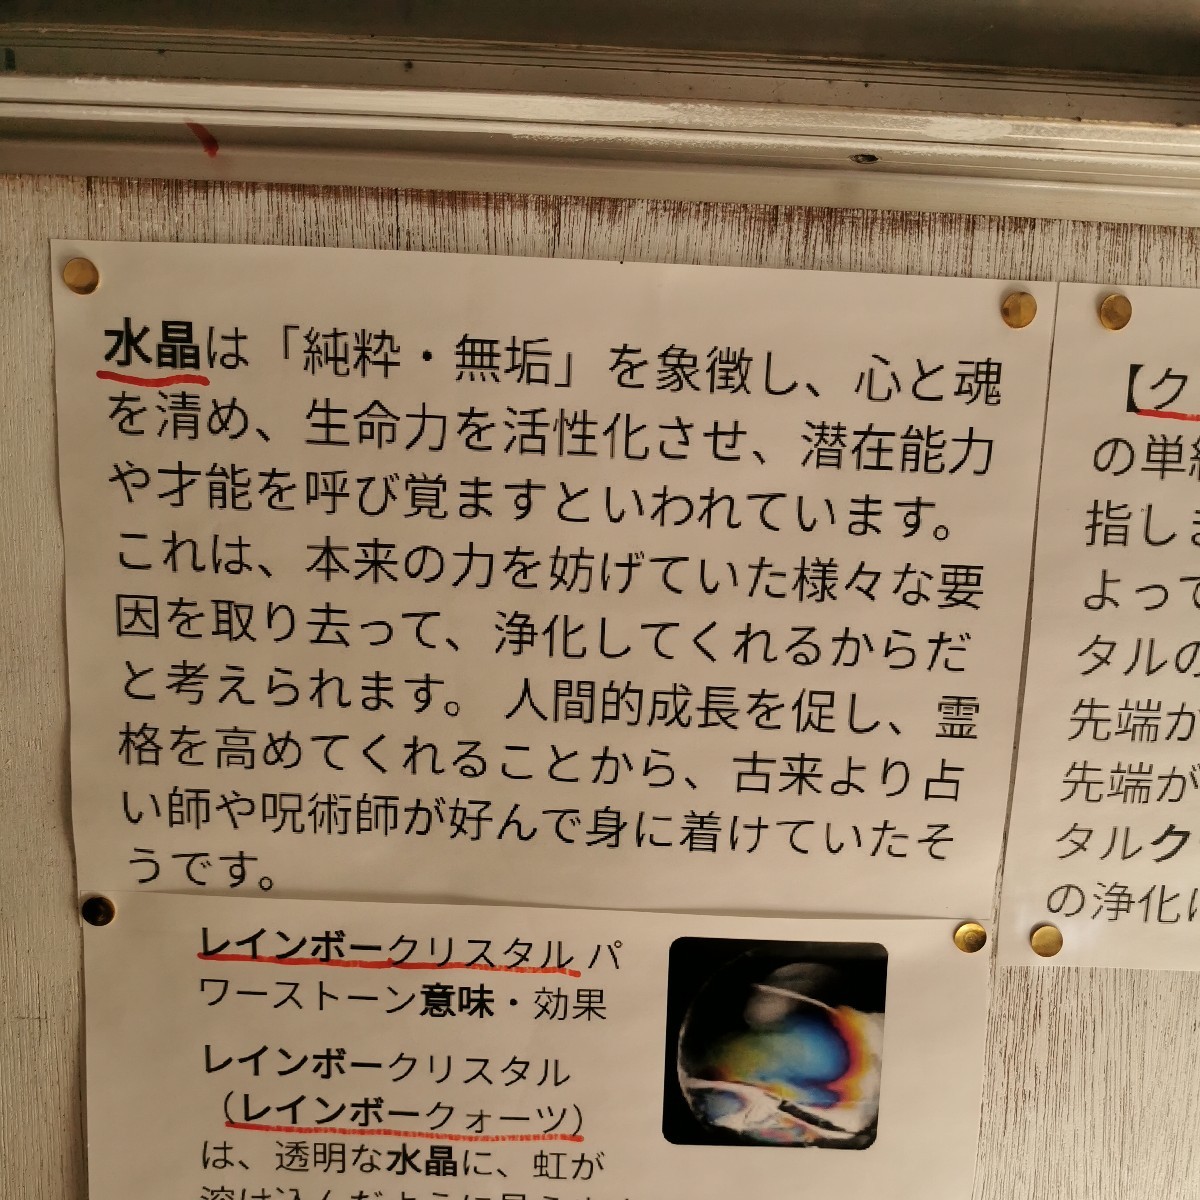 水晶は「純粋・無垢」を象徴し、心と魂
を清め、生命力を活性化させ、潜在能力
や才能を呼び覚ますといわれています。
これは、本来の力を妨げていた様々な要
因を取り去って、浄化してくれるからだ
と考えられます。 人間的成長を促し、霊
格を高めてくれることから、古来より占
い師や呪術師が好んで身に着けていたそ
うです。
レインボークリスタル パ
ワーストーン意味・効果
レインボークリスタル
（レインボークォーツ）
は、透明な水晶に、虹が
【ク
の単
指し
よって
タルの
先端が
先端が
タルク
の浄化に